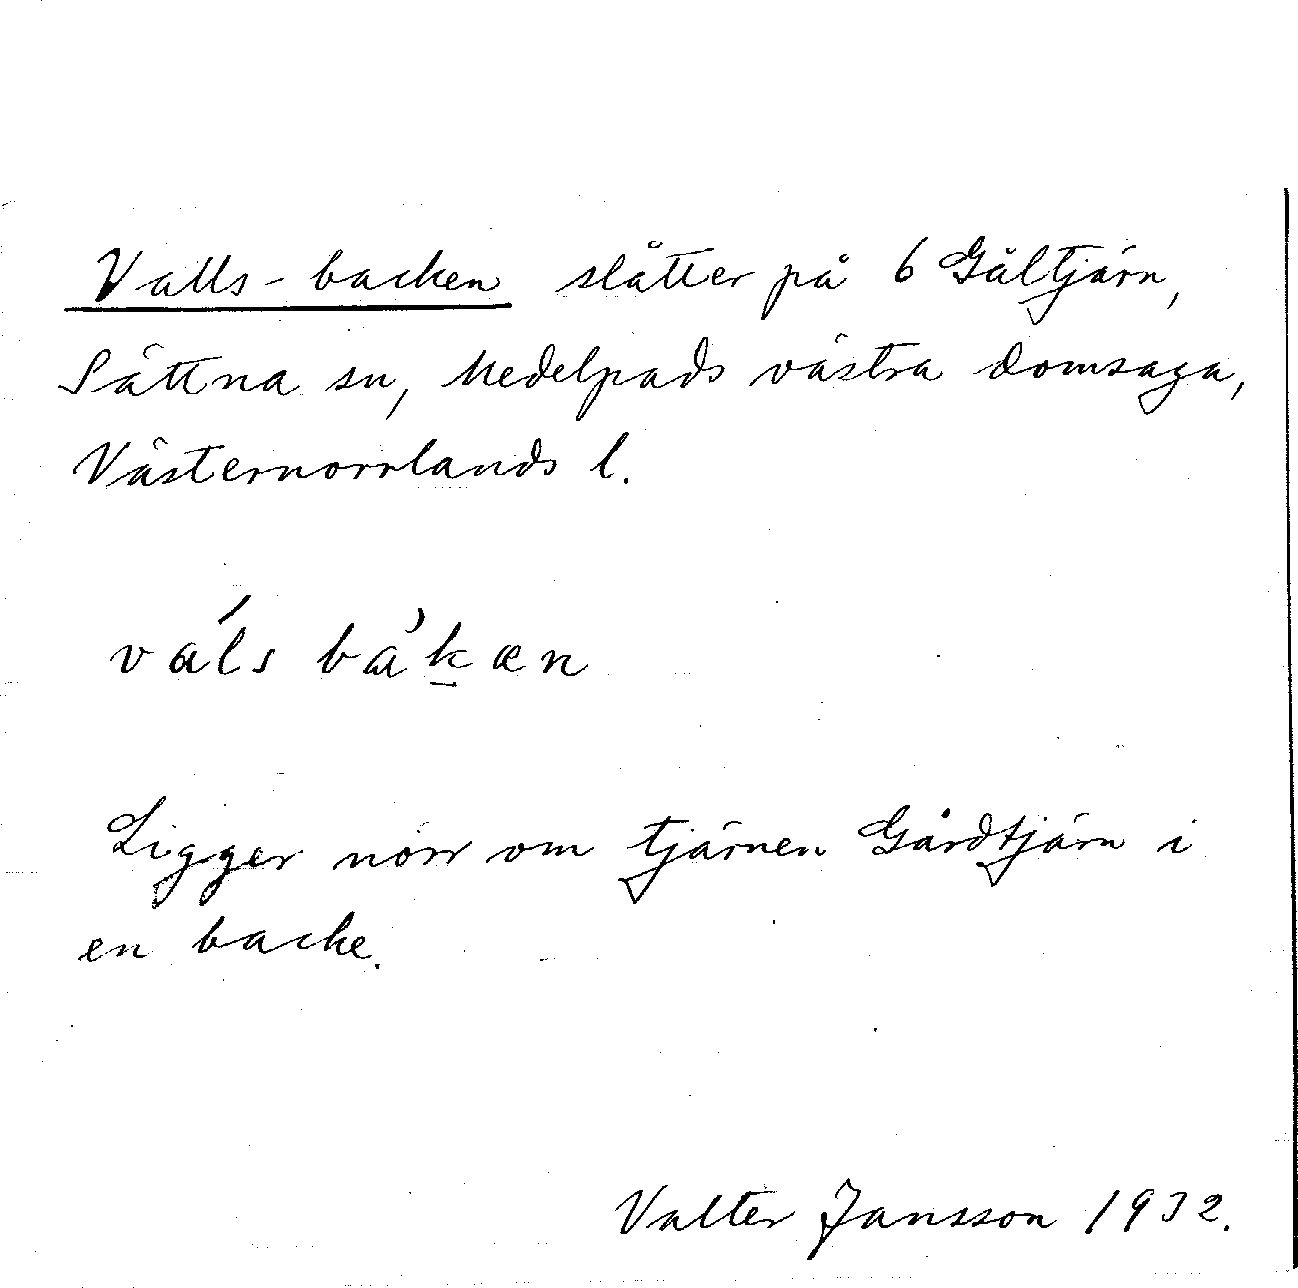 Valls-backen slåtter på 6 Gåltjärn,
Sättna sn, Medelpads västra domsaga,
Västernorrlands l.
váls bàk̲æn
Ligger norr om tjärnen Gårdtjärn i
en backe.
Valter Jansson 1932.